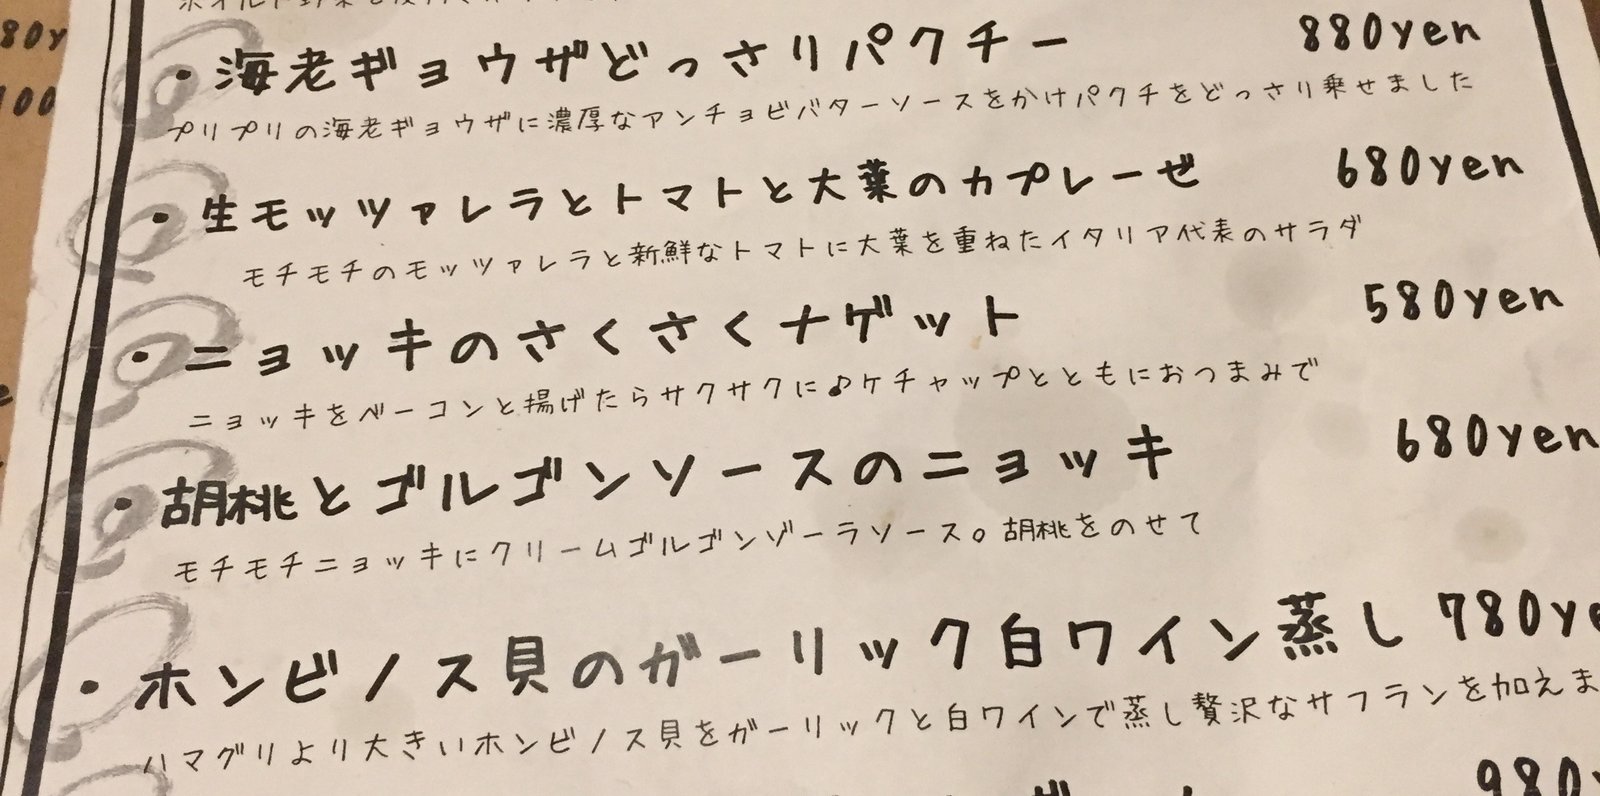 80y
100
・海老ギョウザどっさりパクチー 880yen
プリプリの海老ギョウザに濃厚なアンチョビバターソースをかけパクチをどっさり乗せました
・生モッツァレラとトマトと大葉のカプレーゼ 680yen
モチモチのモッツァレラと新鮮なトマトに大葉を重ねたイタリア代表のサラダ
・ニョッキのさくさくナゲット 580yen
ニョッキをベーコンと揚げたらサクサクに♪ケチャップとともにおつまみで
・胡桃とゴルゴンソースのニョッキ 680yen
モチモチニョッキにクリームゴルゴンゾーラソース。胡桃をのせて
・ホンビノス貝のガーリック白ワイン蒸し 780ye
ハマグリより大きいホンビノス貝をガーリックと白ワインで蒸し贅沢なサフランを加えま
980y